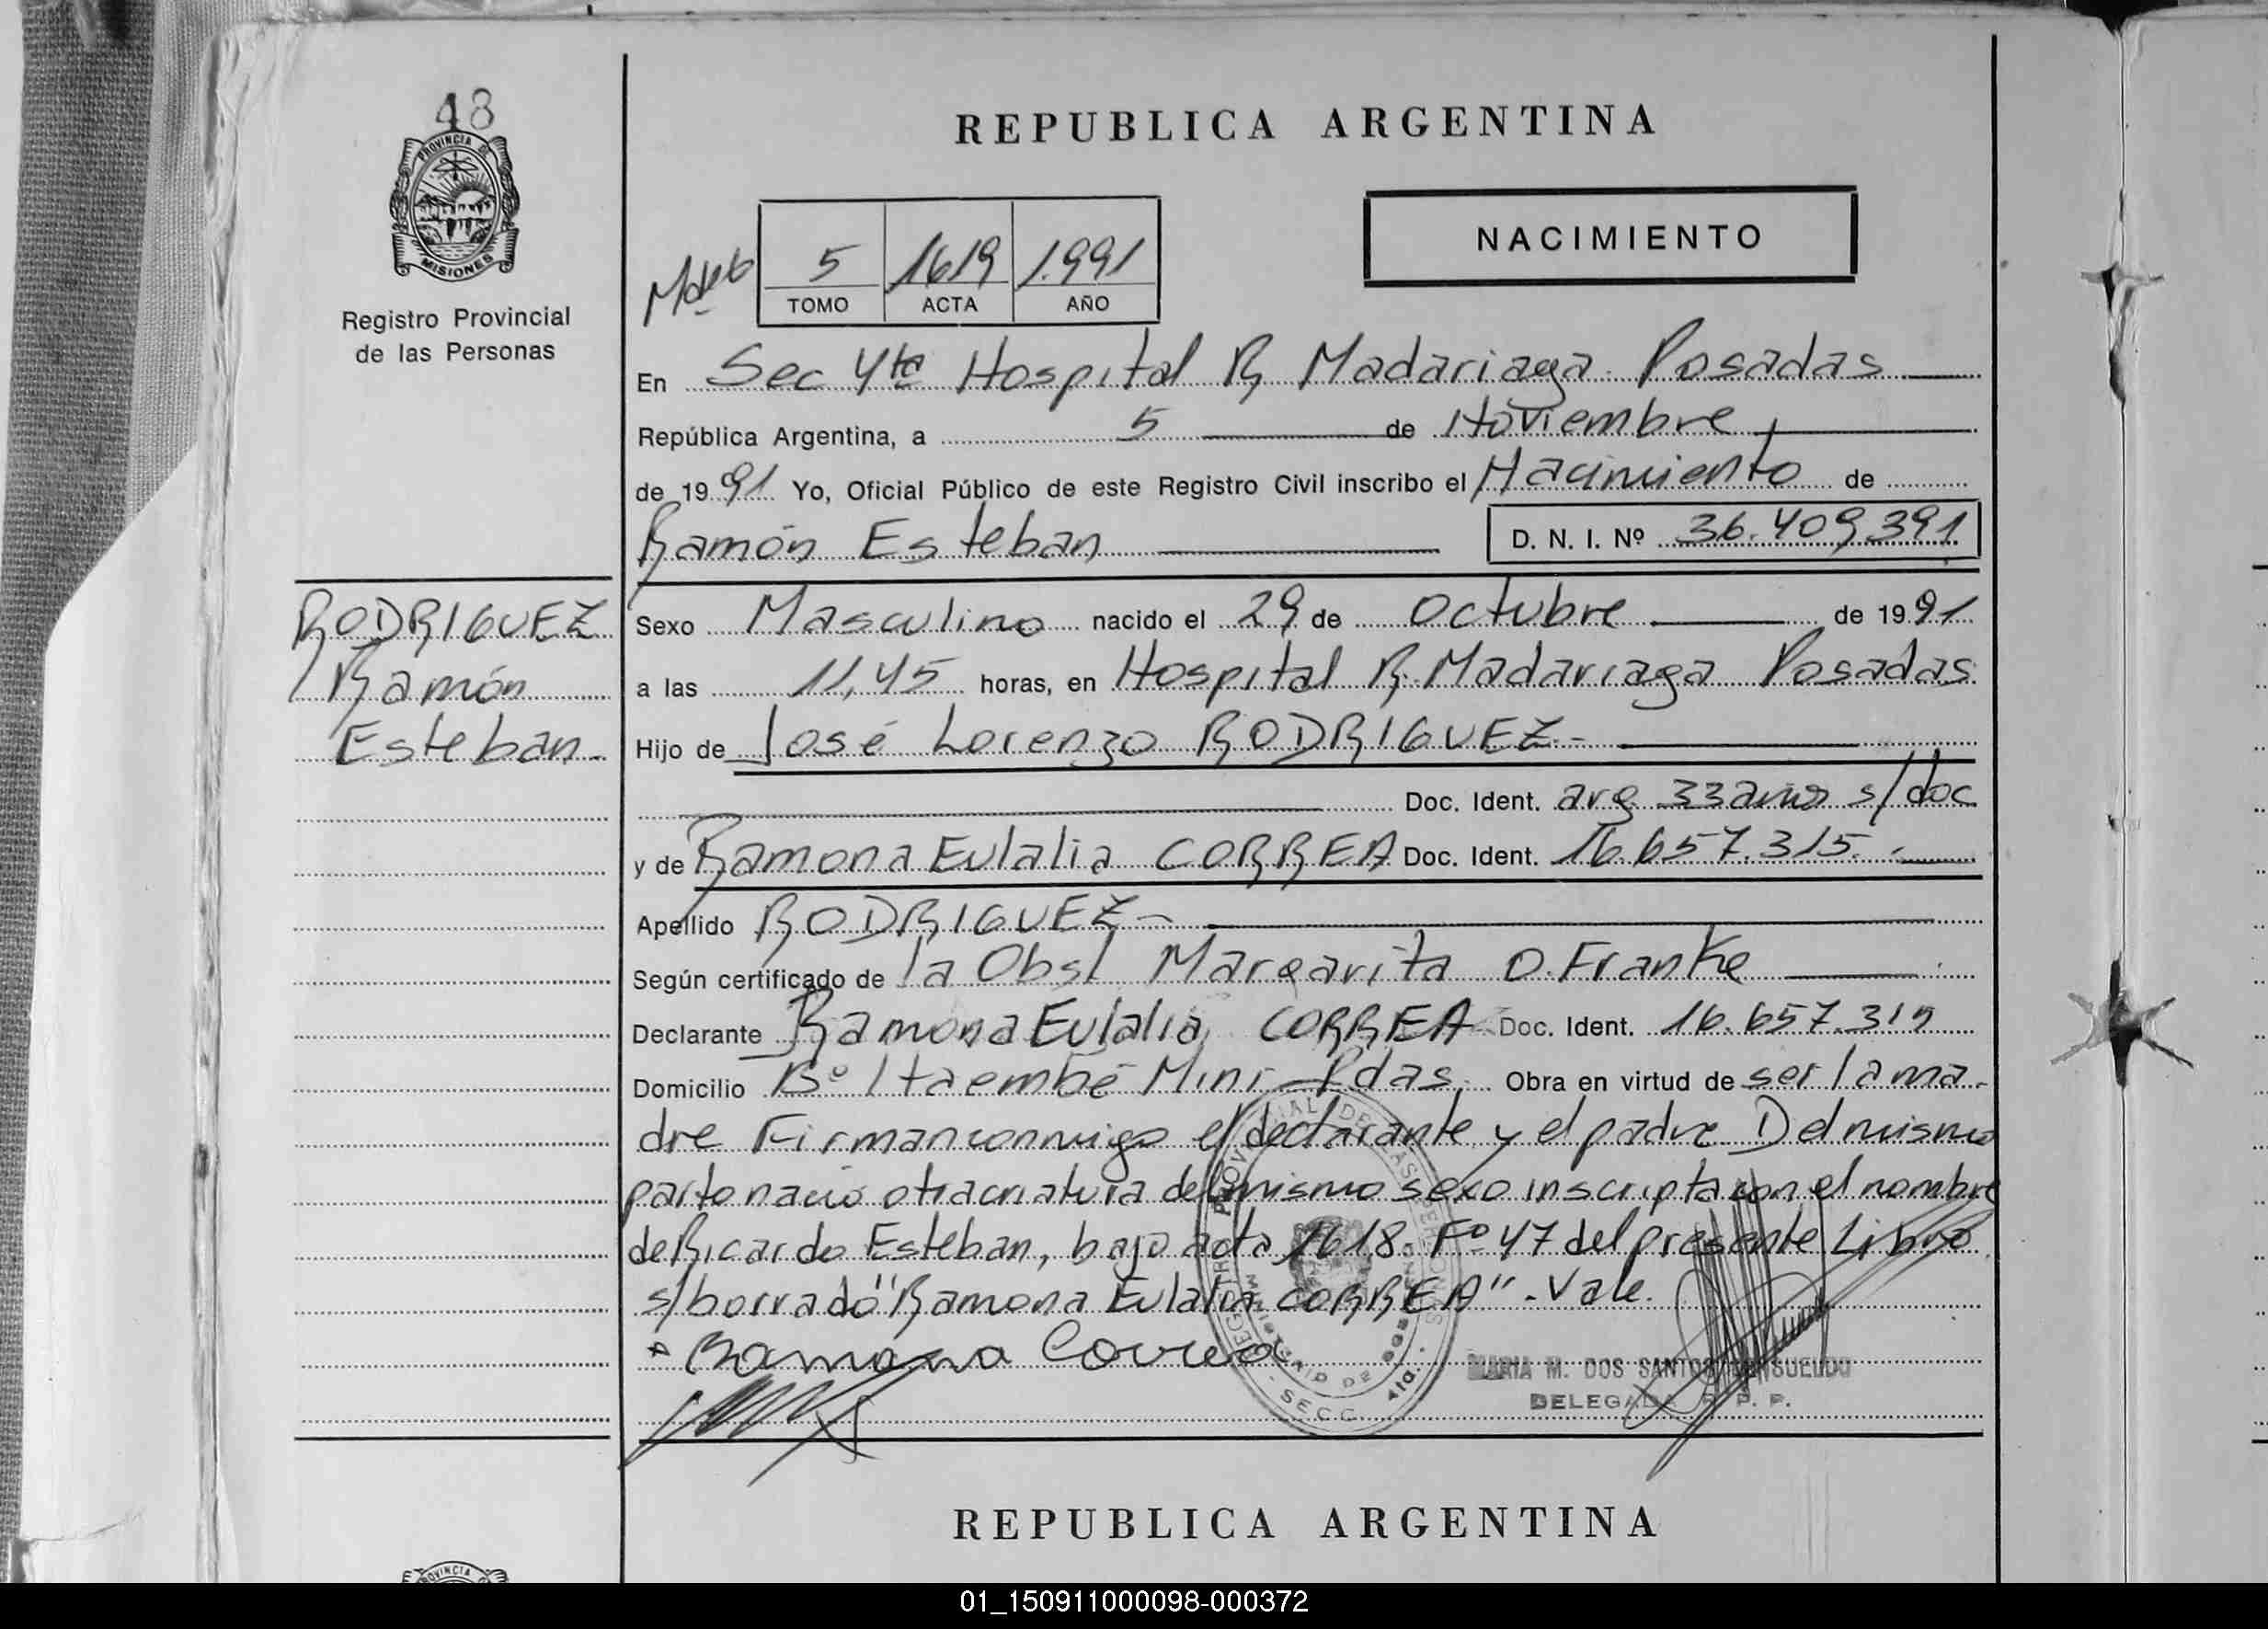 48
PROVINCIA DE
MISIONES
Registro Provincial
de las Personas
RODRIGUEZ
Ramón
Esteban.-
REPUBLICA ARGENTINA
NACIMIENTO
5 1619 1.991
TOMO ACTA AÑO
En Sec 4ta Hospital R Madariaga Posadas
República Argentina, a 5 de Noviembre
de 1991 Yo, Oficial Público de este Registro Civil inscribo el Nacimiento de
Ramón Esteban D. N. I. Nº 36.409.391
Sexo Masculino nacido el 29 de Octubre de 1991
a las 11,45 horas, en Hospital R. Madariaga Posadas
Hijo de José Lorenzo RODRIGUEZ-
Doc. Ident. arg 33 años s/doc
y de Ramona Eulalia CORREA Doc. Ident. 16.657.315.-
Apellido RODRIGUEZ-
Según certificado de la Obst Margarita O. Franke
Declarante Ramona Eulalia CORREA Doc. Ident. 16.657.315
Domicilio Bº Itaembé Mini - Pdas. Obra en virtud de ser la ma-
dre Firman conmigo el declarante y el padre Del mismo
parto nació otra criatura del mismo sexo inscripta con el nombre
de Ricardo Esteban, bajo acta 1618. Fº 47 del presente Libro
s/borrado "Ramona Eulalia CORREA".- Vale.
Ramona Correa
MARIA M. DOS SANTOS
DELEGADA R. P. P.
SECC 4ta.
REPUBLICA ARGENTINA
PROVINCIA
01_150911000098-000372